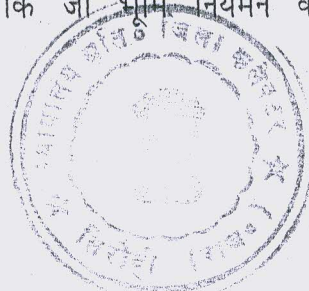 कि जो भूमि नियमन व
न्यायालय अति० जिला कलेक्टर
सिरोही (राज०)